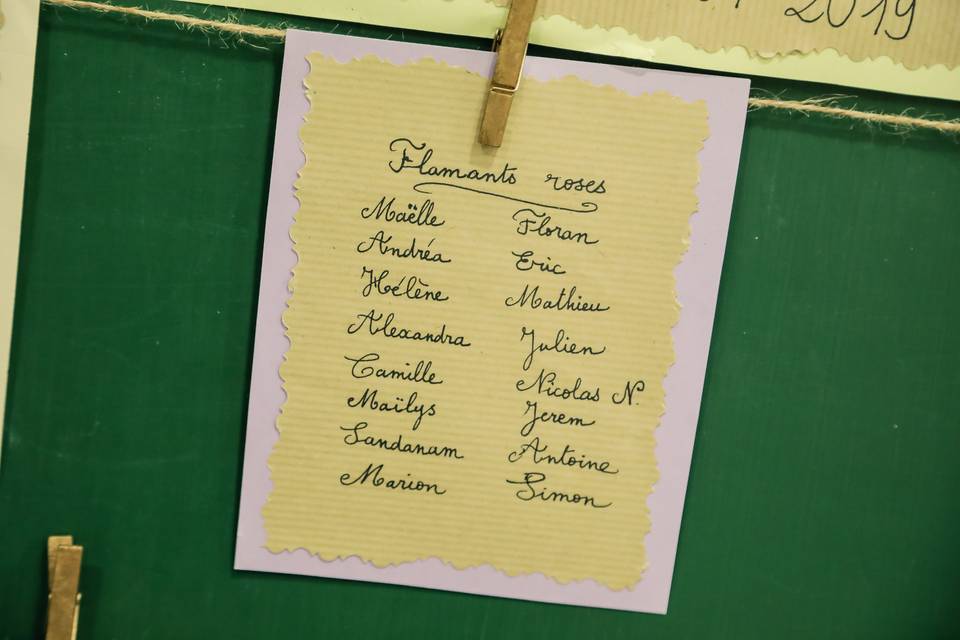 2019
Flamants roses
Maëlle
Andréa
Hélène
Alexandra
Camille
Maïlys
Sandanam
Marion
Floran
Eric
Mathieu
Julien
Nicolas N.
Jerem
Antoine
Simon